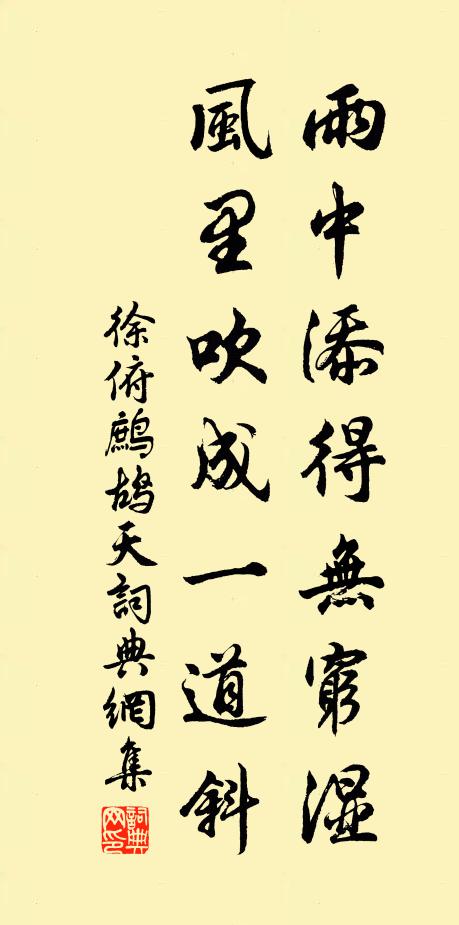 雨中添得無窮濕
風里吹成一道斜
徐俯鷓鴣天詞典網集
詞典网印